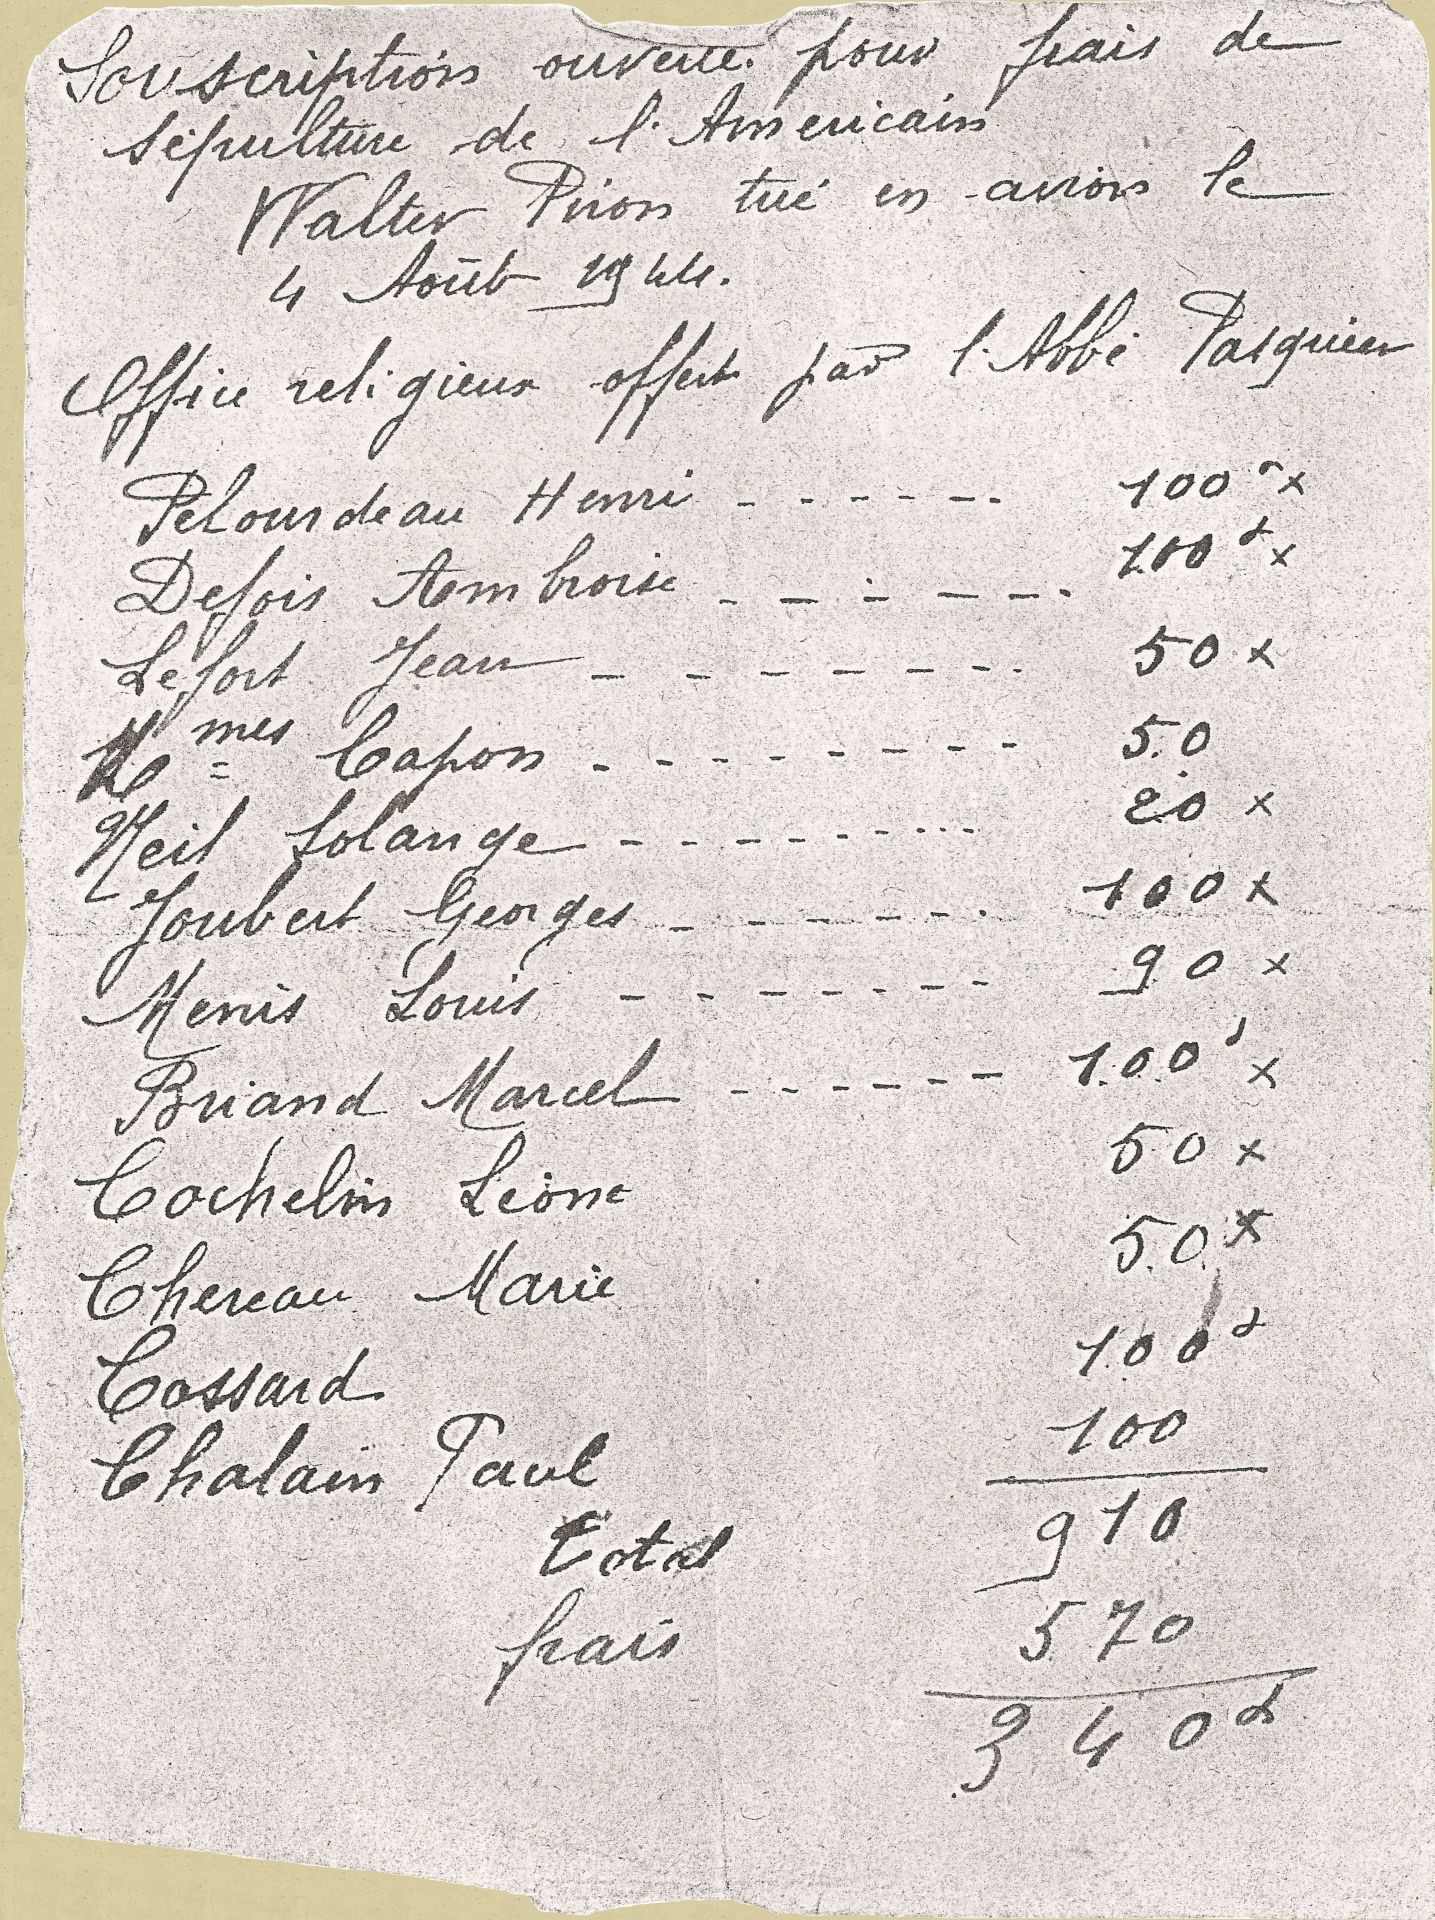 Souscription ouverte pour frais de
sépulture de l'Americain
Walter Piron tué en avion le
4 Août 1944.
Office religieux offert par l'Abbé Pasquier
Pelourdeau Henri - - - - - - 100 x
Defois Ambroise - - - - - - 100 x
Lefort Jean - - - - - - - 50 x
mes Capon - - - - - - - - 50
Neil Solange - - - - - - - - - 20 x
Joubert Georges - - - - - - - 100 x
Menis Louis - - - - - - - - 90 x
Briand Marcel - - - - - - 100 x
Cochelin Léone 50 x
Chereau Marie 50 x
Cossard 100
Chalain Paul 100
Total 910
frais 570
340